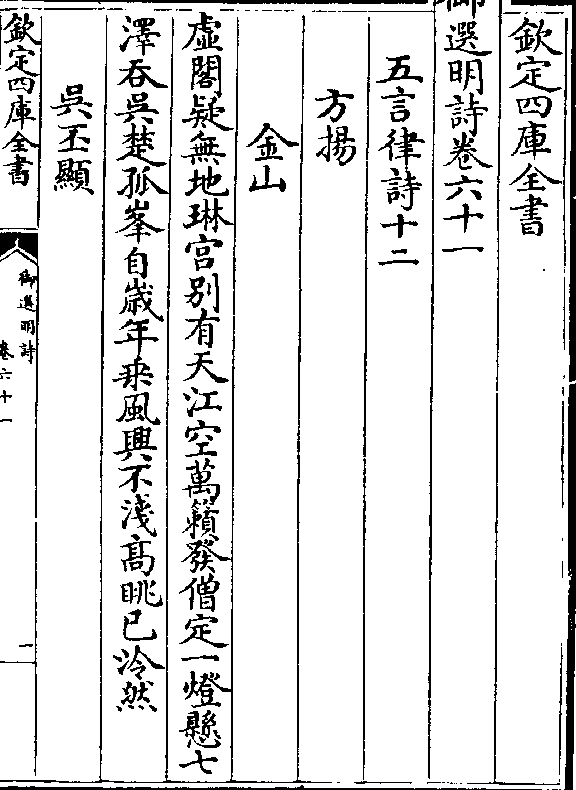 欽定四庫全書
御選明詩卷六十一
五言律詩十二
方揚
金山
虛閣疑無地琳宮別有天江空萬籟發僧定一燈懸七
澤吞吳楚孤峯自歲年乘風興不淺高眺已泠然
吳玉顯
欽定四庫全書
御選明詩
卷六十一
一